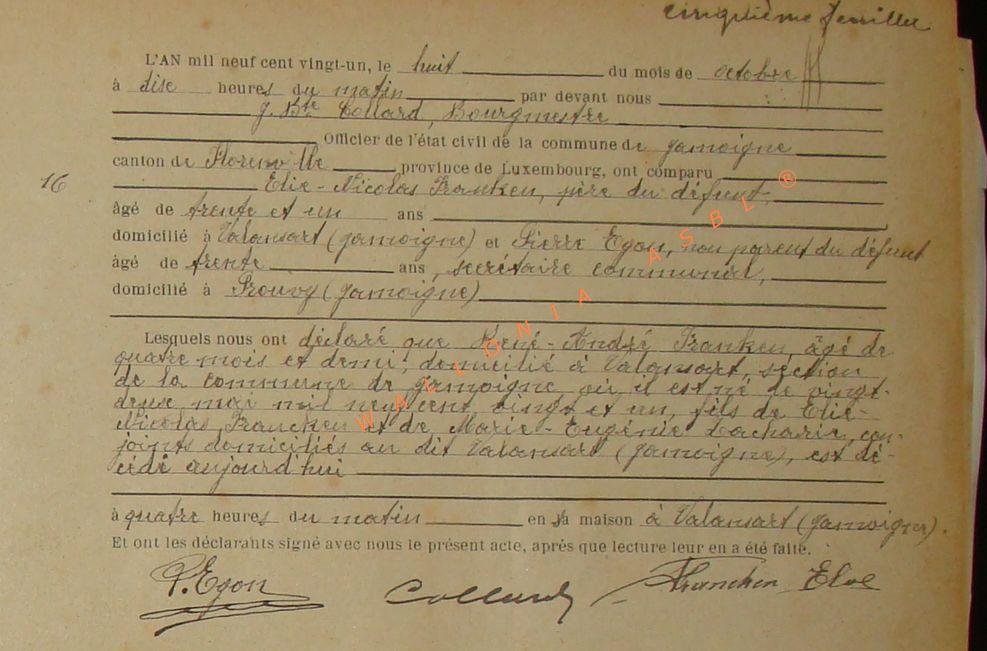 cinquième feuillet
L'AN mil neuf cent vingt-un, le huit du mois de octobre
à dise heures du matin par devant nous
J. Bte Collard, Bourgmestre
Officier de l'état civil de la commune de Jamoigne
canton de Florenville province de Luxembourg, ont comparu
16
Elie-Nicolas Franken, père du défunt,
âgé de trente et un ans
domicilié à Valansart (Jamoigne) et Pierre Egon, non parent du défunt
âgé de trente ans, secrétaire communal,
domicilié à Prouvy (Jamoigne)
Lesquels nous ont déclaré que René-André Franken, âgé de
quatre mois et demi, domicilié à Valansart, section
de la commune de Jamoigne, où il est né de vingt-
deux mai mil neuf cent vingt et un, fils de Elie-
Nicolas Francken et de Marie-Eugénie Zacharie, con-
joints domiciliés au dit Valansart (Jamoigne), est dé-
cédé aujourd'hui
à quatre heures du matin en sa maison à Valansart (Jamoigne).
Et ont les déclarants signé avec nous le présent acte, après que lecture leur en a été faite.
P. Egon Collard Francken Elie
WALLONIA ASBL ®